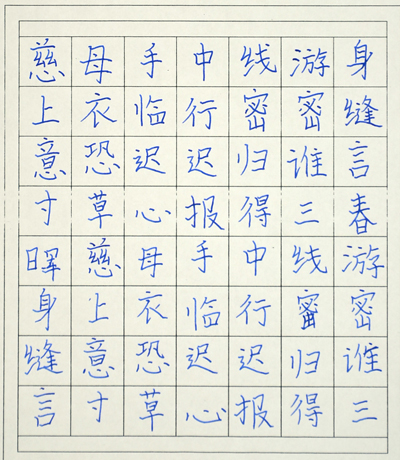 慈母手中线游身
上衣临行密密缝
意恐迟迟归谁言
寸草心报得三春
晖慈母手中线游
身上衣临行密密
缝意恐迟迟归谁
言寸草心报得三